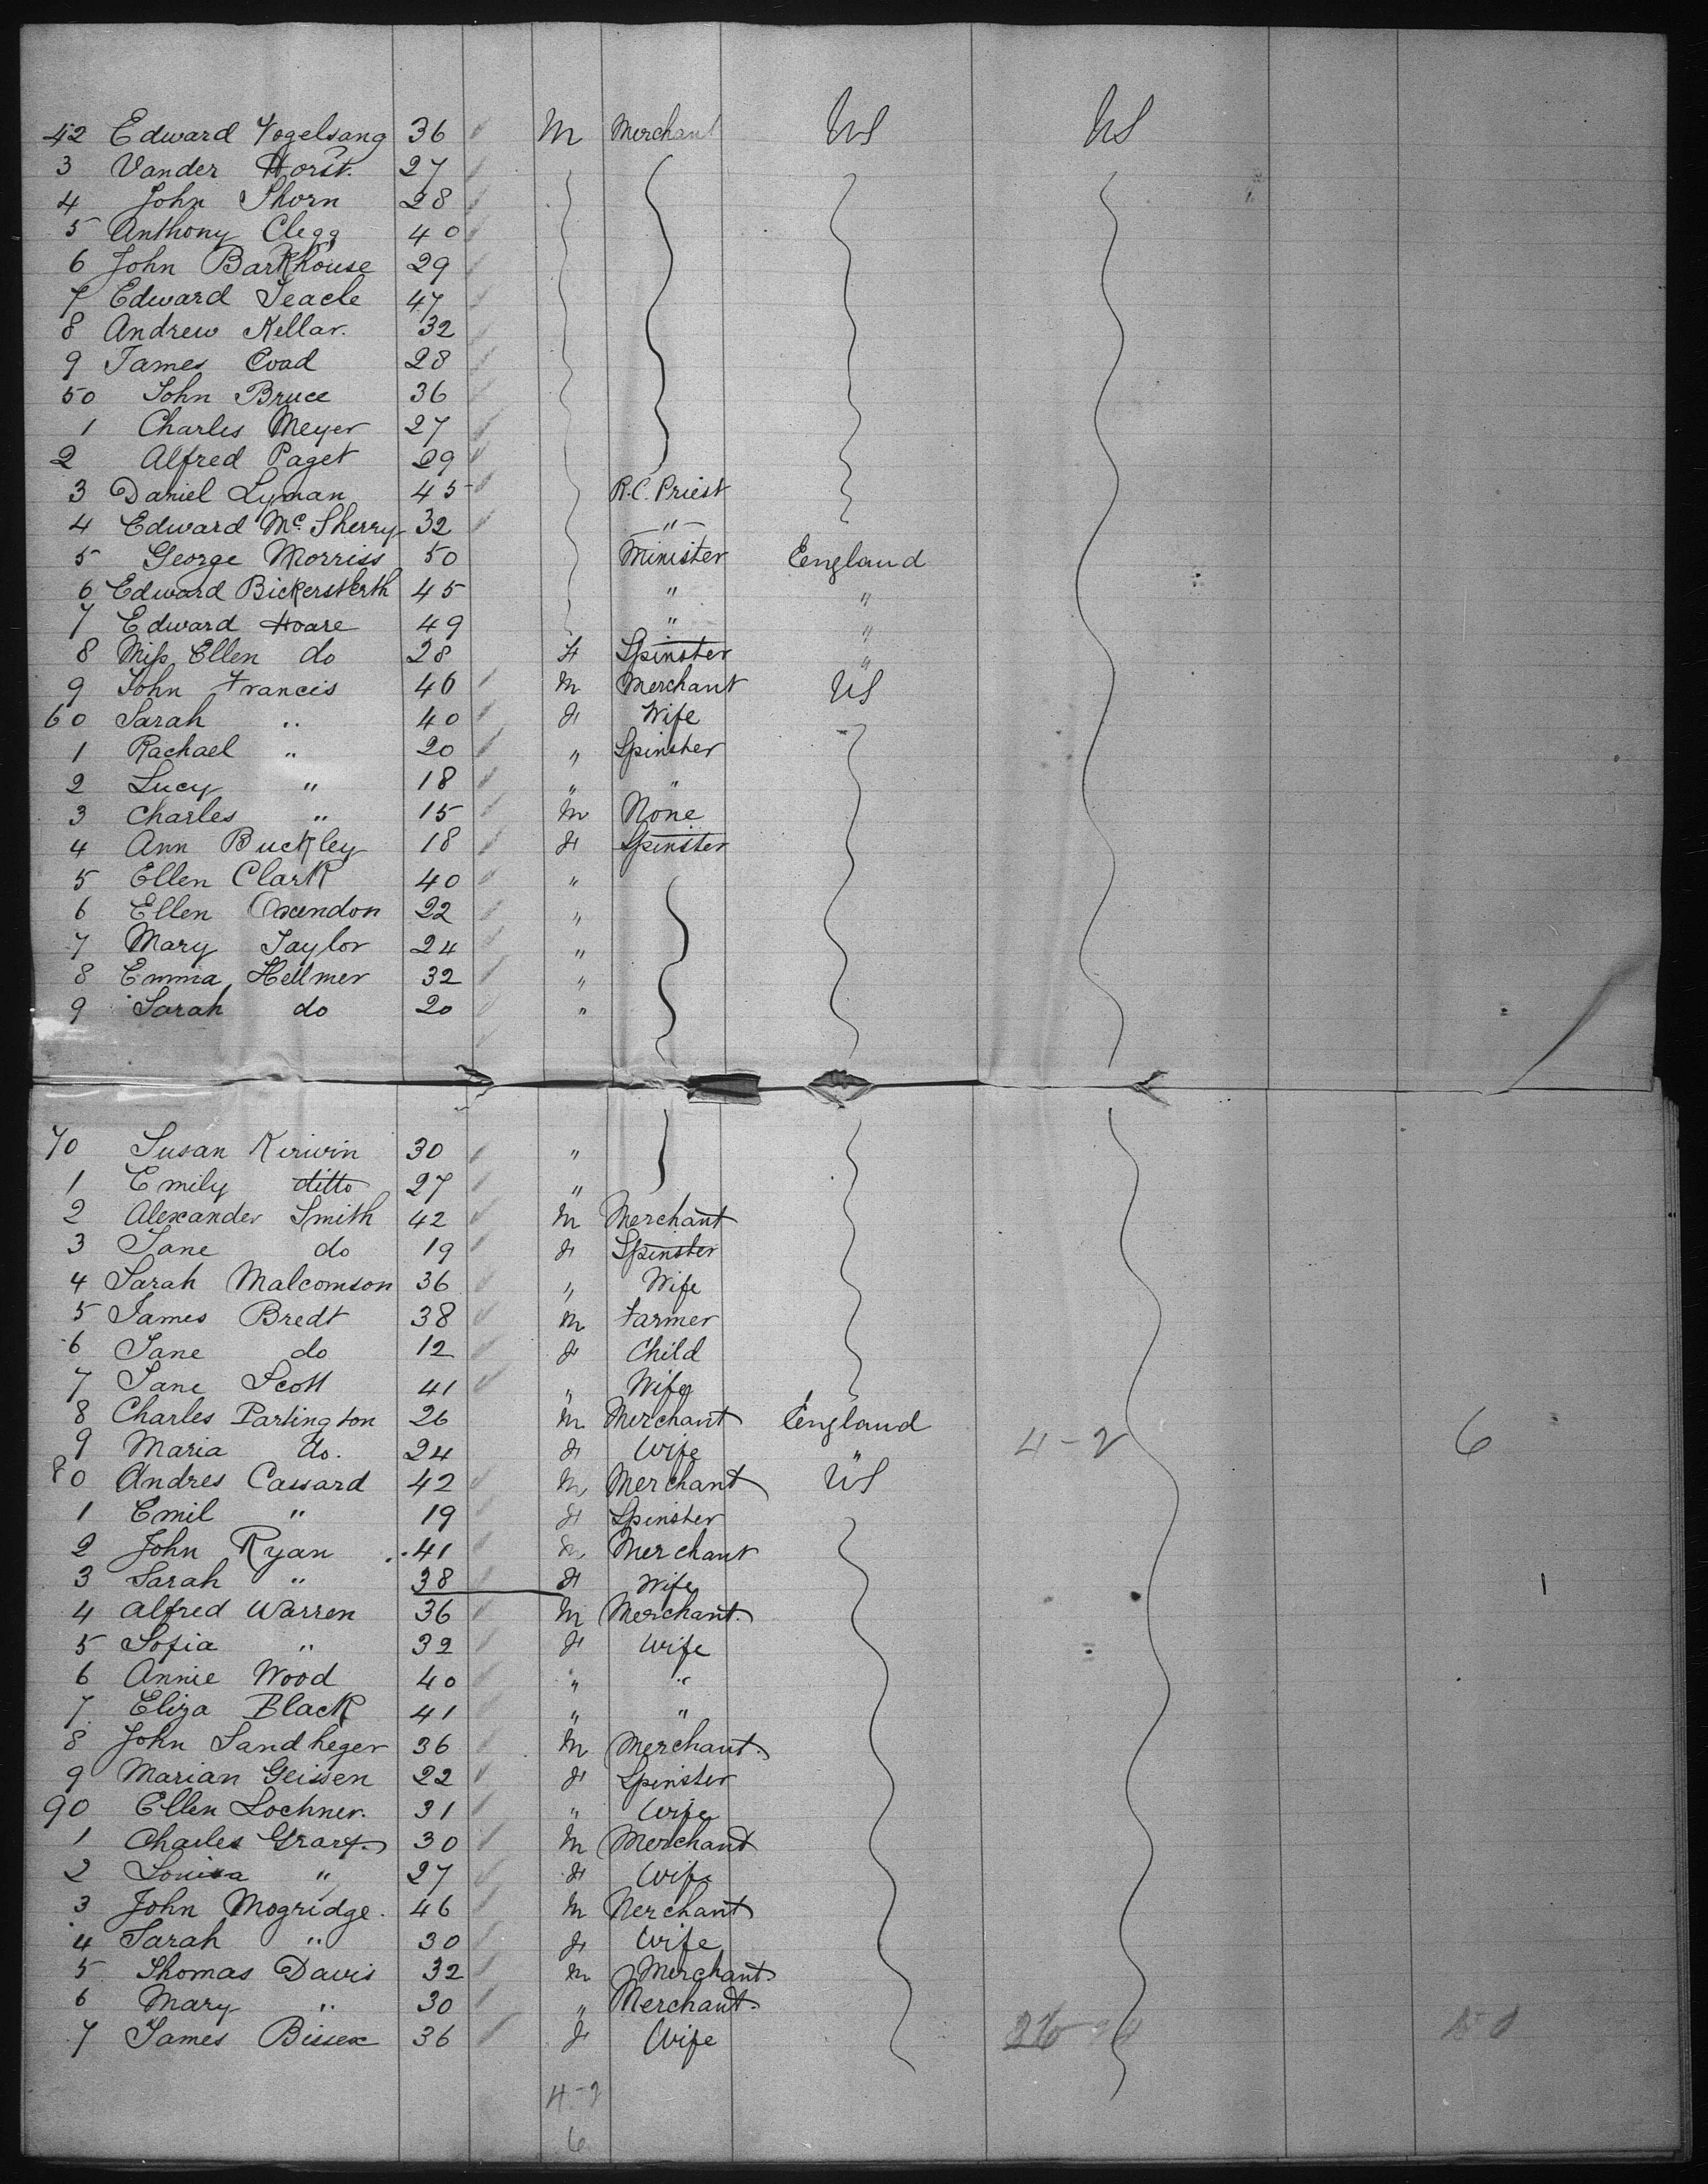 42 Edward Vogelsang 36 M Merchant US US
3 Vander Horst. 27
4 John Thorn 28
5 Anthony Clegg 40
6 John Barkhouse 29
7 Edward Teacle 47
8 Andrew Kellar. 32
9 James Coad 28
50 John Bruce 36
1 Charles Meyer 27
2 Alfred Paget 29
3 Daniel Lyman 45 R.C. Priest
4 Edward Mc. Sherry 32 "
5 George Morriss 50 Minister England
6 Edward Bickersteth 45 " "
7 Edward Hoare 49 " "
8 Miss Ellen do 28 F Spinster "
9 John Francis 46 M Merchant US
60 Sarah " 40 F Wife
1 Rachael " 20 " Spinster
2 Lucy " 18 " "
3 Charles " 15 M None
4 Ann Buckley 18 F Spinster
5 Ellen Clark 40 "
6 Ellen Oxendon 22 "
7 Mary Taylor 24 "
8 Emma Hellmer 32 "
9 Sarah do 20 "
70 Susan Kirwin 30 "
1 Emily ditto 27 "
2 Alexander Smith 42 M Merchant
3 Jane do 19 F Spinster
4 Sarah Malcomson 36 " Wife
5 James Bredt 38 M Farmer
6 Jane do 12 F Child
7 Jane Scott 41 " Wife
8 Charles Partington 26 M Merchant England
9 Maria do. 24 F Wife " 4-2 6
80 Andres Cassard 42 M Merchant US
1 Emil " 19 F Spinster
2 John Ryan 41 M Merchant
3 Sarah " 38 F Wife 1
4 Alfred Warren 36 M Merchant.
5 Sofia " 32 F Wife
6 Annie Wood 40 " "
7 Eliza Black 41 " "
8 John Sandheger 36 M Merchant.
9 Marian Geissen 22 F Spinster
90 Ellen Lochner. 31 " Wife
1 Charles 30 M Merchant
2 Louisa " 27 F Wife
3 John Mogridge. 46 M Merchant
4 Sarah " 30 F Wife
5 Thomas Davis 32 M Merchant
6 Mary " 30 " Merchant.
7 James Bissex 36 F Wife 26
4-2
6